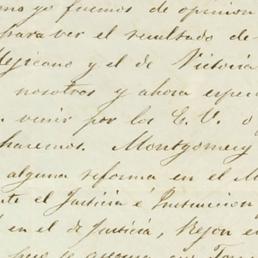 mo yo fuemos de opinion
para ver el resultado de
Mejicano y el de Victoria
nosotros y ahora espe
venir por los E. U. ó
haremos. Montgomery
alguna reforma en el M
te el Justicia é Instruccion
en el de Justicia, Rejon e